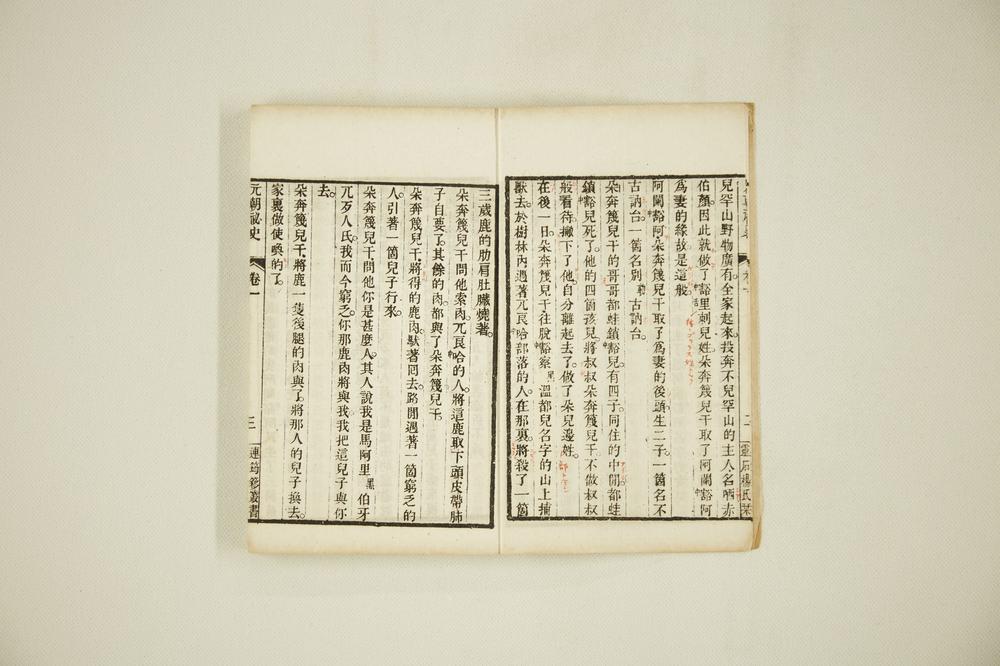 兒罕山野物廣有全家起來投奔不兒罕山的主人名哂赤
伯顏因此就做了豁里剌兒姓朶奔篾兒干取了阿闌豁阿
爲妻的緣故是這般
阿闌豁阿朶奔篾兒干取了爲妻的後頭生二子一箇名不
古訥台一箇名別勒古訥台
朶奔篾兒干的哥哥都蛙鎖豁兒有四子同住的中間都蛙
鎖豁兒死了他的四箇孩兒將叔叔朶奔篾兒干不做叔叔
般看待撇下了他自分離起去了做了朶兒邊姓
在後一日朶奔篾兒干往脫豁察黑溫都兒名字的山上捕
獸去於樹林內遇著兀良哈部落的人在那裏將殺了一箇
三歲鹿的肋肩肚臟燒著
朶奔篾兒干問他索肉兀良哈的人將這鹿取下頭皮帶肺
子自要了其餘的肉都與了朶奔篾兒干
朶奔篾兒干將得的鹿肉馱著囘去路閒遇著一箇窮乏的
人引著一箇兒子行來
朶奔篾兒干問他你是甚麼人其人說我是馬阿里黑伯牙
兀歹人氏我而今窮乏你那鹿肉將與我我把這兒子與你
去
朶奔篾兒干將鹿一隻後腿的肉與了將那人的兒子換去
家裏做使喚的了
元朝祕史 卷一 三 連筠簃叢書